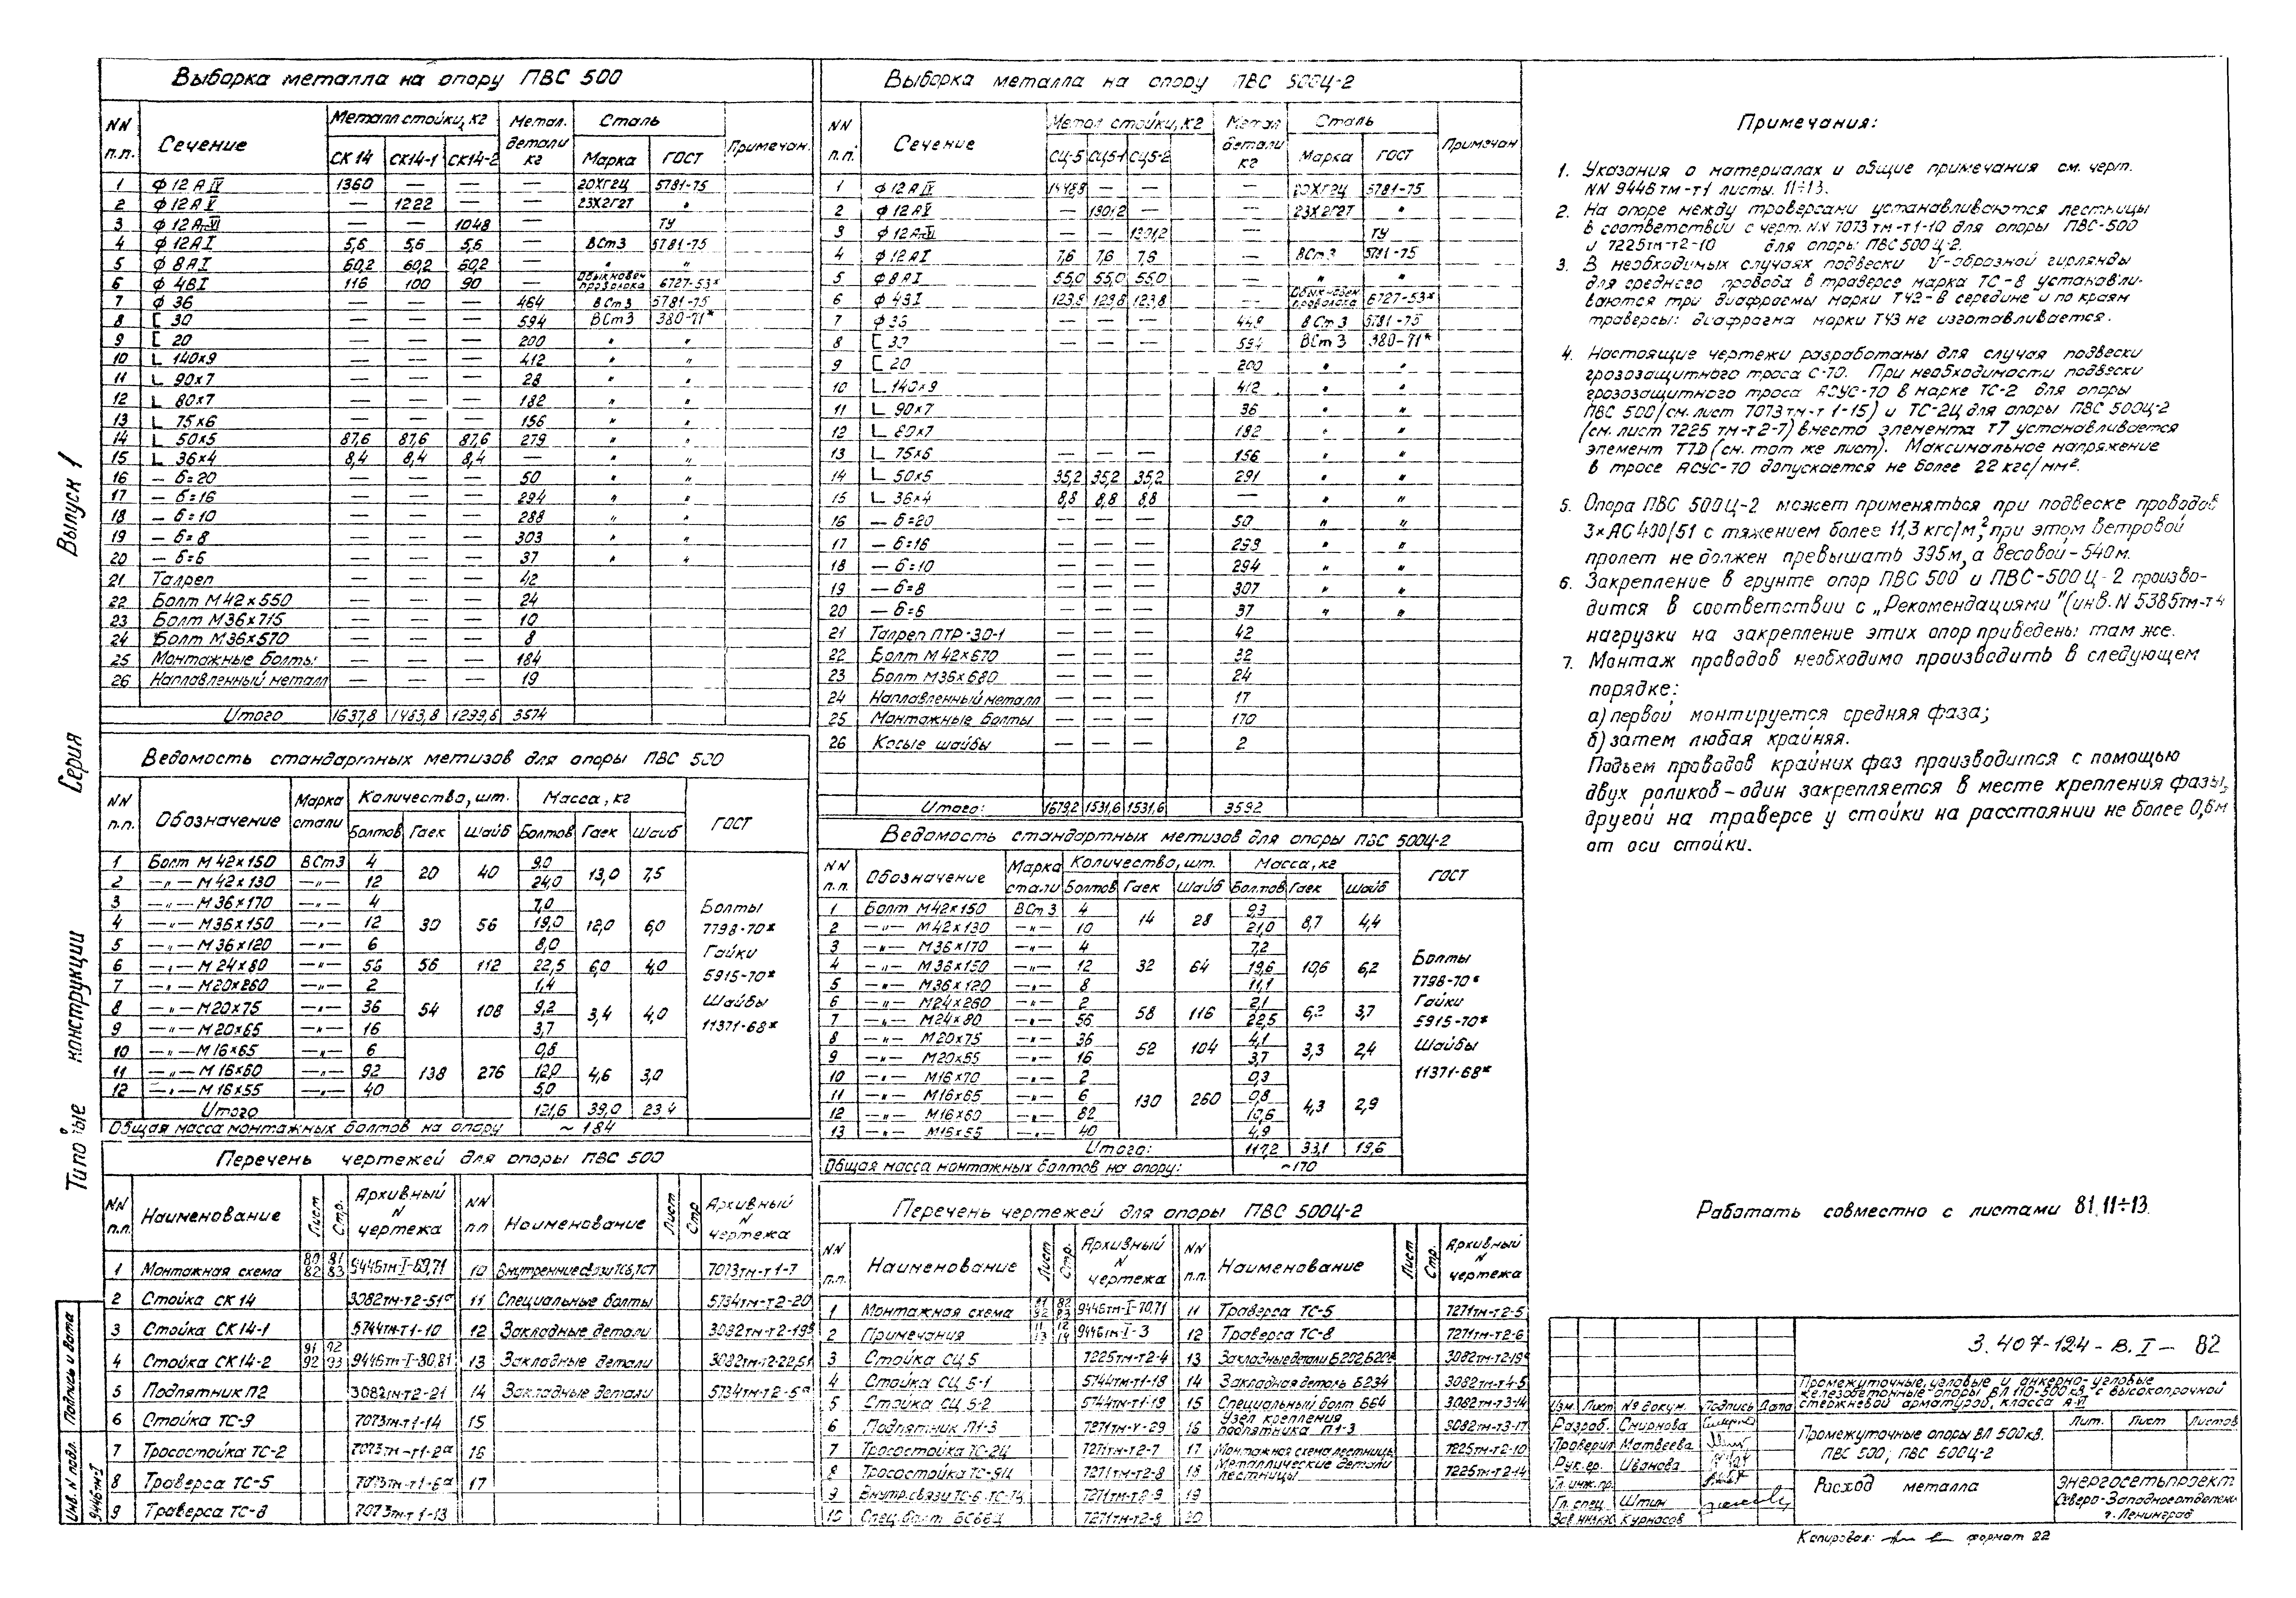 Выборка металла на опору ПВС 500
NN п.п. Сечение Металл стойки, кг Метал. детали кг Сталь Примечан.
СК 14 СК14-1 СК14-2 Марка ГОСТ
1 ф 12 А IV 1360 — — — 20ХГ2Ц 5781-75
2 ф 12 А V — 1222 — — 23Х2Г2Т "
3 ф 12 А-VI — — 1048 — ТУ
4 ф 12 А I 5,6 5,6 5,6 — ВСт3 5781-75
5 ф 8 А I 60,2 60,2 60,2 — " "
6 ф 4В I 116 100 90 — Обыкновен проволока 6727-53*
7 ф 36 — — — 464 ВСт3 5781-75
8 [ 30 — — — 594 ВСт3 380-71*
9 [ 20 — — — 200 " "
10 L 140×9 — — — 412 " "
11 L 90×7 — — — 28 " "
12 L 80×7 — — — 182 " "
13 L 75×6 — — — 156 " "
14 L 50×5 87,6 87,6 87,6 279 " "
15 L 36×4 8,4 8,4 8,4 — " "
16 — б=20 — — — 50 " "
17 — б=16 — — — 294 " "
18 — б=10 — — — 288 " "
19 — б=8 — — — 303 " "
20 — б=6 — — — 37 " "
21 Талреп — — — 42
22 Болт М42×550 — — — 24
23 Болт М36×715 — — — 10
24 Болт М36×570 — — — 8
25 Монтажные болты — — — 184
26 Наплавленный металл — — — 19
Итого 1637,8 1483,8 1299,8 3574
Ведомость стандартных метизов для опоры ПВС 500
NN п.п. Обозначение Марка стали Количество, шт. Масса, кг ГОСТ
Болтов Гаек Шайб Болтов Гаек Шайб
1 Болт М42×150 ВСт3 4 20 40 9,0 13,0 7,5
2 —"— М42×130 —"— 12 24,0
3 —"— М36×170 4 7,0
4 —"— М36×150 —"— 12 30 56 19,0 12,0 6,0
5 —"— М36×120 —"— 6 8,0
6 —"— М24×80 —"— 56 56 112 22,5 6,0 4,0
7 —"— М20×260 —"— 2 1,4
8 —"— М20×75 —"— 36 54 108 9,2 3,4 4,0
9 —"— М20×65 —"— 16 3,7
10 —"— М16×65 —"— 6 0,8
11 —"— М16×60 —"— 92 138 276 12,0 4,6 3,0
12 —"— М16×55 —"— 40 5,0
Болты
7798-70*
Гайки
5915-70*
Шайбы
11371-68*
Итого 121,6 39,0 23,4
Общая масса монтажных болтов на опору ~ 184
Перечень чертежей для опоры ПВС 500
NN п.п. Наименование Лист Стр. Архивный N чертежа NN п.п Наименование Лист Стр Архивный N чертежа
1 Монтажная схема 80 82 81 83 9446тм-I-69,71 10 Внутренние связи ТС6,ТС7 7073тм-т1-7
2 Стойка СК 14 3082тм-т2-51а 11 Специальные болты 5734тм-т2-20
3 Стойка СК14-1 5744тм-т1-10 12 Закладные детали 3082тм-т2-19б
4 Стойка СК14-2 91 92 92 93 9446тм-I-80,81 13 Закладные детали 3082тм-т2-22,51
5 Подпятник П2 3082тм-т2-21 14 Закладные детали 5734тм-т2-5а
6 Стойка ТС-9 7073тм-т1-14 15
7 Тросостойка ТС-2 7073тм-т1-2а 16
8 Траверса ТС-5 7073тм-т1-6а 17
9 Траверса ТС-8 7073тм-т1-13
Выборка металла на опору ПВС 500Ц-2
NN п.п. Сечение Метал стойки, кг Метал детали кг Сталь Примечан
СЦ-5 СЦ5-1 СЦ5-2 Марка ГОСТ
1 ф 12 А IV 1448,8 — — — 20ХГ2Ц 5781-75
2 ф 12 А V — 1301,2 — — 23Х2Г2Т "
3 ф 12 А-VI — — 1301,2 — ТУ
4 ф 12 А I 7,6 7,6 7,6 — ВСт3 5781-75
5 ф 8 А I 55,0 55,0 55,0 — " "
6 ф 4В I 123,8 123,8 123,8 — Обыкновен проволока 6727-53*
7 ф 36 — — — 449 ВСт3 5781-75
8 [ 30 — — — 594 ВСт3 380-71*
9 [ 20 — — — 200 " "
10 L 140×9 — — — 412 " "
11 L 90×7 — — — 36 " "
12 L 80×7 — — — 182 " "
13 L 75×6 — — — 156 " "
14 L 50×5 35,2 35,2 35,2 291 " "
15 L 36×4 8,8 8,8 8,8 — " "
16 — б=20 — — — 50 " "
17 — б=16 — — — 299 " "
18 — б=10 — — — 294 " "
19 — б=8 — — — 307 " "
20 — б=6 — — — 37 " "
21 Талреп ПТР-30-1 — — — 42
22 Болт М42×670 — — — 32
23 Болт М36×680 — — — 24
24 Наплавленный металл — — — 17
25 Монтажные болты — — — 170
26 Косые шайбы — — — 2
Итого: 1679,2 1531,6 1531,6 3592
Ведомость стандартных метизов для опоры ПВС 500Ц-2
NN п.п. Обозначение Марка стали Количество, шт. Масса, кг ГОСТ
Болтов Гаек Шайб Болтов Гаек Шайб
1 Болт М42×150 ВСт 3 4 14 28 9,3 8,7 4,4
2 —"— М42×130 —"— 10 21,0
3 —"— М36×170 —"— 4 7,2
4 —"— М36×150 —"— 12 32 64 19,6 10,6 6,2
5 —"— М36×120 —"— 8 11,1
6 —"— М24×260 —"— 2 58 116 2,1 3,7
7 —"— М24×80 —"— 56 22,5
8 —"— М20×75 —"— 36 52 104 4,1 3,3 2,4
9 —"— М20×55 —"— 16 3,7
10 —"— М16×70 —"— 2 0,3
11 —"— М16×65 —"— 6 130 260 0,8 4,3 2,9
12 —"— М16×60 —"— 82 10,6
13 —"— М16×55 —"— 40 4,9
Болты
7798-70*
Гайки
5915-70*
Шайбы
11371-68*
Итого: 117,2 33,1 19,6
Общая масса монтажных болтов на опору: ~170
Перечень чертежей для опоры ПВС 500Ц-2
NN п.п. Наименование Лист Стр. Архивный N чертежа NN п.п. Наименование Лист Стр. Архивный N чертежа
1 Монтажная схема 82 83 9446тм-I-70,71 11 Траверса ТС-5 7271тм-т2-5
2 Примечания 11 13 12 14 9446тм-I-3 12 Траверса ТС-8 7271тм-т2-6
3 Стойка СЦ 5 7225тм-т2-4 13 Закладные детали 3082тм-т2-19б
4 Стойка СЦ 5-1 5744тм-т1-18 14 Закладная деталь Б234 3082тм-т4-5
5 Стойка СЦ 5-2 5744тм-т1-19 15 Специальный болт Б64 3082тм-т3-14
6 Подпятник П1-3 7271тм-х-29 16 Узел крепления подпятника П1-3 3082тм-т3-17
7 Тросостойка ТС-2Ц 7271тм-т2-7 17 Монтажная схема лестниц 7225тм-т2-10
8 Тросостойка ТС-9Ц 7271тм-т2-8 18 Металлические детали лестницы 7225тм-т2-14
9 Внутр. связи 7271тм-т2-9 19
10 Спец. болт 7271тм-т2-8 20
Примечания:
1. Указания о материалах и общие примечания см. черт.
NN 9446 тм-т1 листы. 11÷13.
2. На опоре между траверсами устанавливаются лестницы
в соответствии с черт. NN 7073 тм-т1-10 для опоры ПВС-500
и 7225тм-т2-10 для опоры ПВС 500 Ц-2.
3. В необходимых случаях подвески V-образной гирлянды
для среднего провода в траверсе марка ТС-8 устанавли-
ваются три диафрагмы марки ТЧ2-в середине и по краям
траверсы: диафрагма марки ТЧ3 не изготавливается.
4. Настоящие чертежи разработаны для случая подвески
грозозащитного троса С-70. При необходимости подвески
грозозащитного троса АСУС-70 в марке ТС-2 для опоры
ПВС 500 (см. лист 7073 тм-т 1-15) и ТС-2Ц для опоры ПВС 500Ц-2
(см. лист 7225 тм-т2-7) вместо элемента т7 устанавливается
элемент Т7Д (см. тот же лист). Максимальное напряжение
в тросе АСУС-70 допускается не более 22 кгс/мм².
5. Опора ПВС 500Ц-2 может применяться при подвеске проводов
3×АС 400/51 с тяжением более 11,3 кгс/м², при этом ветровой
пролет не должен превышать 395м, а весовой-540м.
6. Закрепление в грунте опор ПВС 500 и ПВС-500 Ц-2 произво-
дится в соответствии с „Рекомендациями" (инв. N 5385тм-т4
нагрузки на закрепление этих опор приведены там же.
7. Монтаж проводов необходимо производить в следующем
порядке:
а) первой монтируется средняя фаза;
б) затем любая крайняя.
Подъем проводов крайних фаз производится с помощью
двух роликов-один закрепляется в месте крепления фазы,
другой на траверсе у стойки на расстоянии не более 0,6м
от оси стойки.
Работать совместно с листами 81, 11÷13.
3.407-124-В.I- 82
Промежуточные, угловые и анкерно-угловые
железобетонные опоры ВЛ 110-500 кВ с высокопрочной
стержневой арматурой, класса А-VI
Изм. Лист № докум. Подпись Дата
Разраб. Смирнова
Проверил Матвеева
Рук. гр. Иванова
Гл. инж. пр.
Гл. спец. Штин
Курносов
Промежуточные опоры ВЛ 500кВ.
ПВС 500; ПВС 500Ц-2
Лит. Лист Листов
Расход металла
Энергосетьпроект
Северо-Западное отделен
г. Ленинград
Копировал: формат 22
Типовые конструкции Серия Выпуск 1
Подпись и дата
Инв. N подл.
9446тм-I